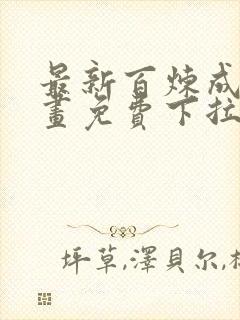 最新百炼成
畫免費下拉
坪草,澤貝尔,林